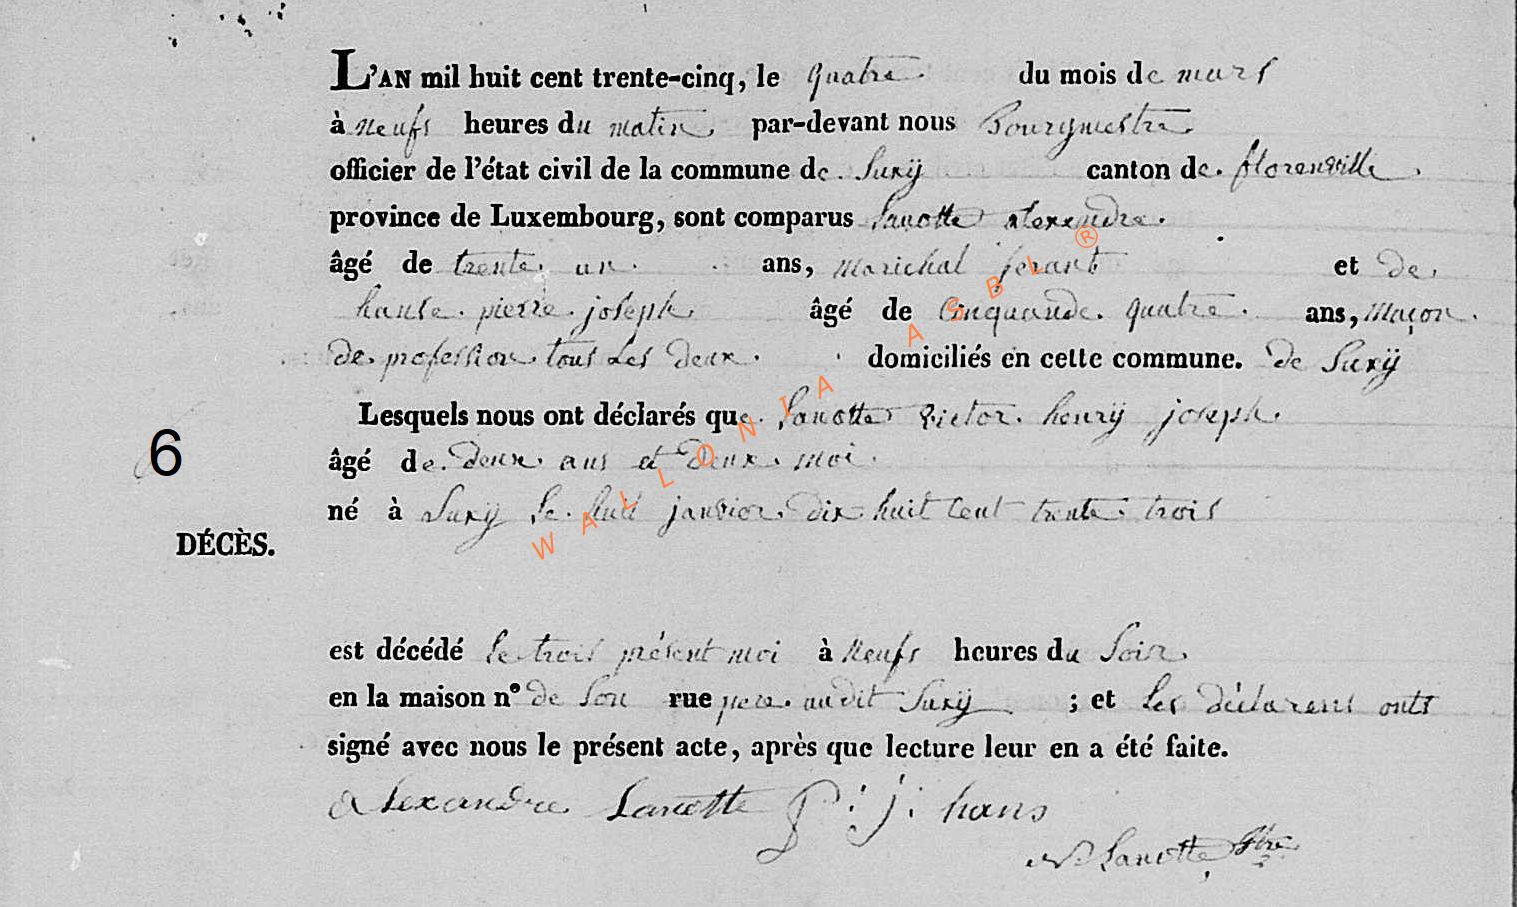 L'AN mil huit cent trente-cinq, le quatre du mois de mars
à neufs heures du matin, par-devant nous Bourgmestre
officier de l'état civil de la commune de Suxÿ canton de florenville
province de Luxembourg, sont comparus Lanotte alexandre.
âgé de trente un ans, marichal ferant et de
hanse pierre joseph âgé de Cinquande quatre ans, maçon
de profession tous Les deux domiciliés en cette commune. de Suxÿ
Lesquels nous ont déclarés que Lanotte Victor henrÿ joseph
6
âgé de deux ans et deux moi
né à Suxÿ Le huit janvier dix huit Cent trente trois
DÉCÈS.
est décédé Le trois présent moi à neufs heures du Soir
en la maison n° de Son rue pere audit Suxÿ ; et Les déclarens onts
signé avec nous le présent acte, après que lecture leur en a été faite.
alexandre Lanotte P: j: hans
N Lanotte
WALLONIA ASBL ®